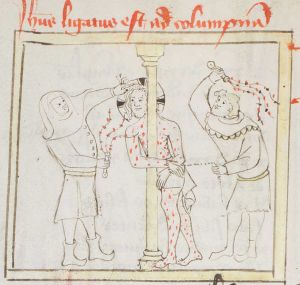 ih̅us ligatus est ad columpnā